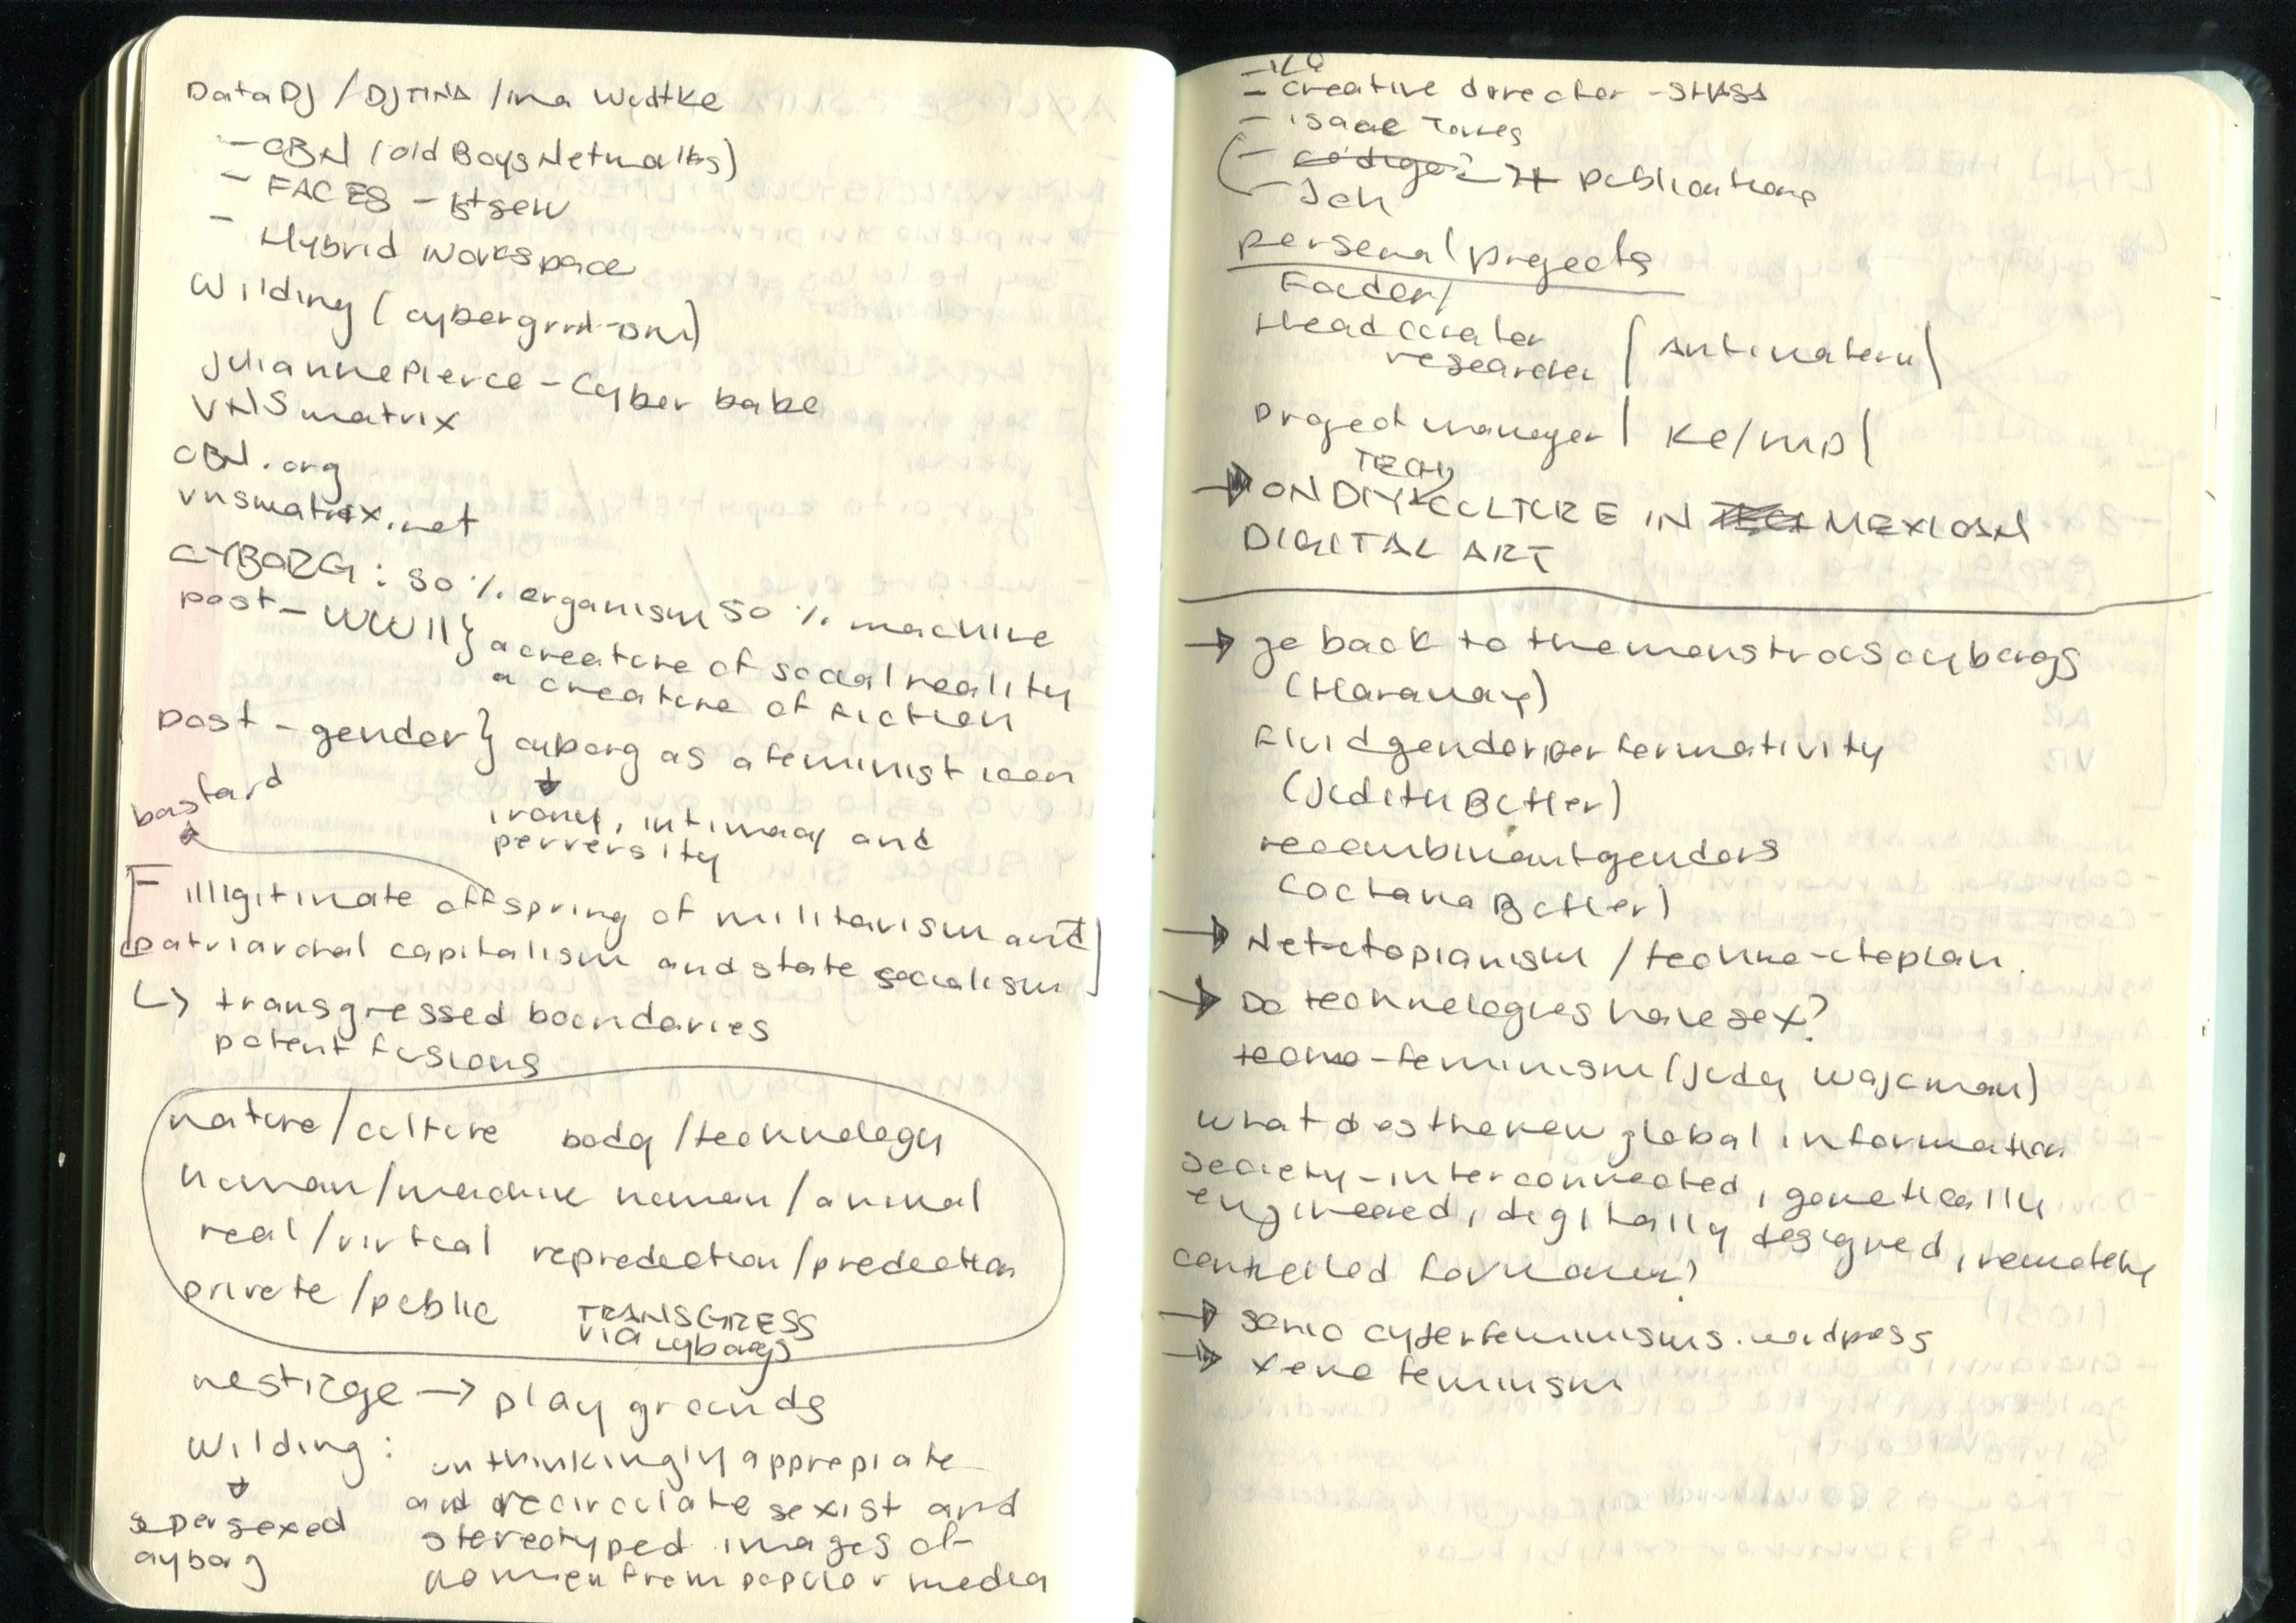 Data DJ / DJ TINA / Ina Wudtke
- OBN (old Boys Networks)
- FACES -
- Hybrid Workspace
Wilding (
Julianne Pierce - Cyber babe
VNS matrix
OBN.org
vnsmatrix.net
CYBORG: 50 % organism 50 % machine
post - WWII } a creature of social reality
a creature of fiction
post - gender } cyborg as a feminist icon
bastard
irony, intimacy and
perversity
illigitimate offspring of militarism and
patriarchal capitalism and state socialism
transgressed boundaries
potent fusions
nature/culture body/technology
human/machine human/animal
real/virtual reproduction/production
private/public TRANSGRESS
via cyborgs
→ play grounds
Wilding: unthinkingly appropiate
and recirculate sexist and
supersexed stereotyped images of
cyborg women from popular media
- creative director -
- Isaac Torres
- código publications
- Ich
personal projects
Head curator
researcher ( Antimateria )
project manager ( Ke/mp (
TECH
→ ON DIY CULTURE IN MEXICAN
DIGITAL ART
→ go back to the monstrous cyborgs
(Haraway)
fluid gender performativity
(Judith Butler)
recombinant genders
(Octavia Butler)
→ Net-utopianism / techno-utopian.
→ Do technologies have sex?
tecno-feminism (Judy Wajcman)
what does the new global information
society - interconnected, genetically
engineered, digitally designed, remotely
controlled for women?
→ cyberfeminisms.wordpress
→ xeno feminism